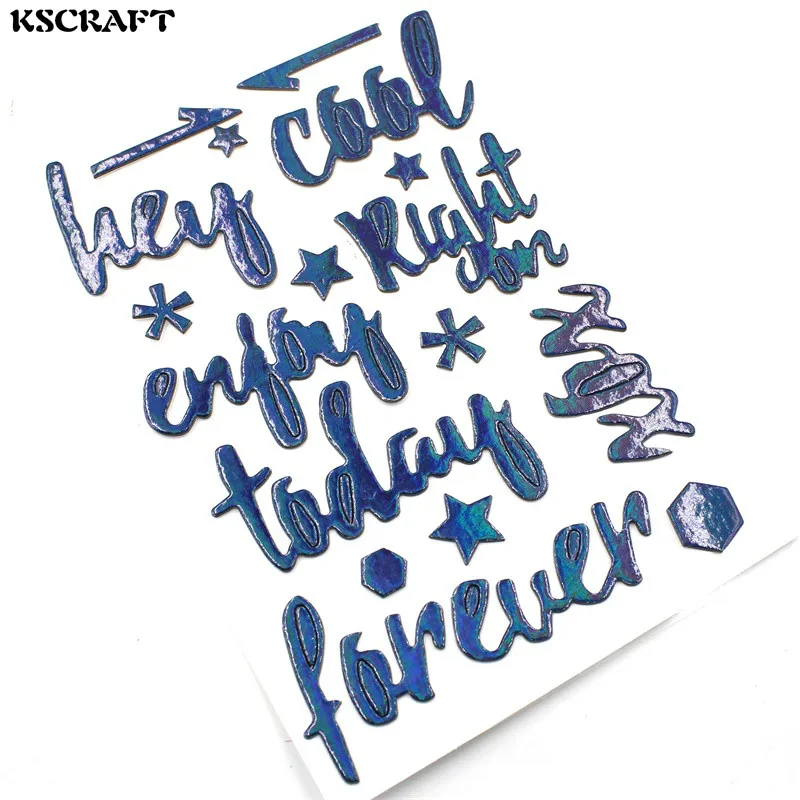 KSCRAFT
cool
hey
Right
on
enjoy
wow
today
forever